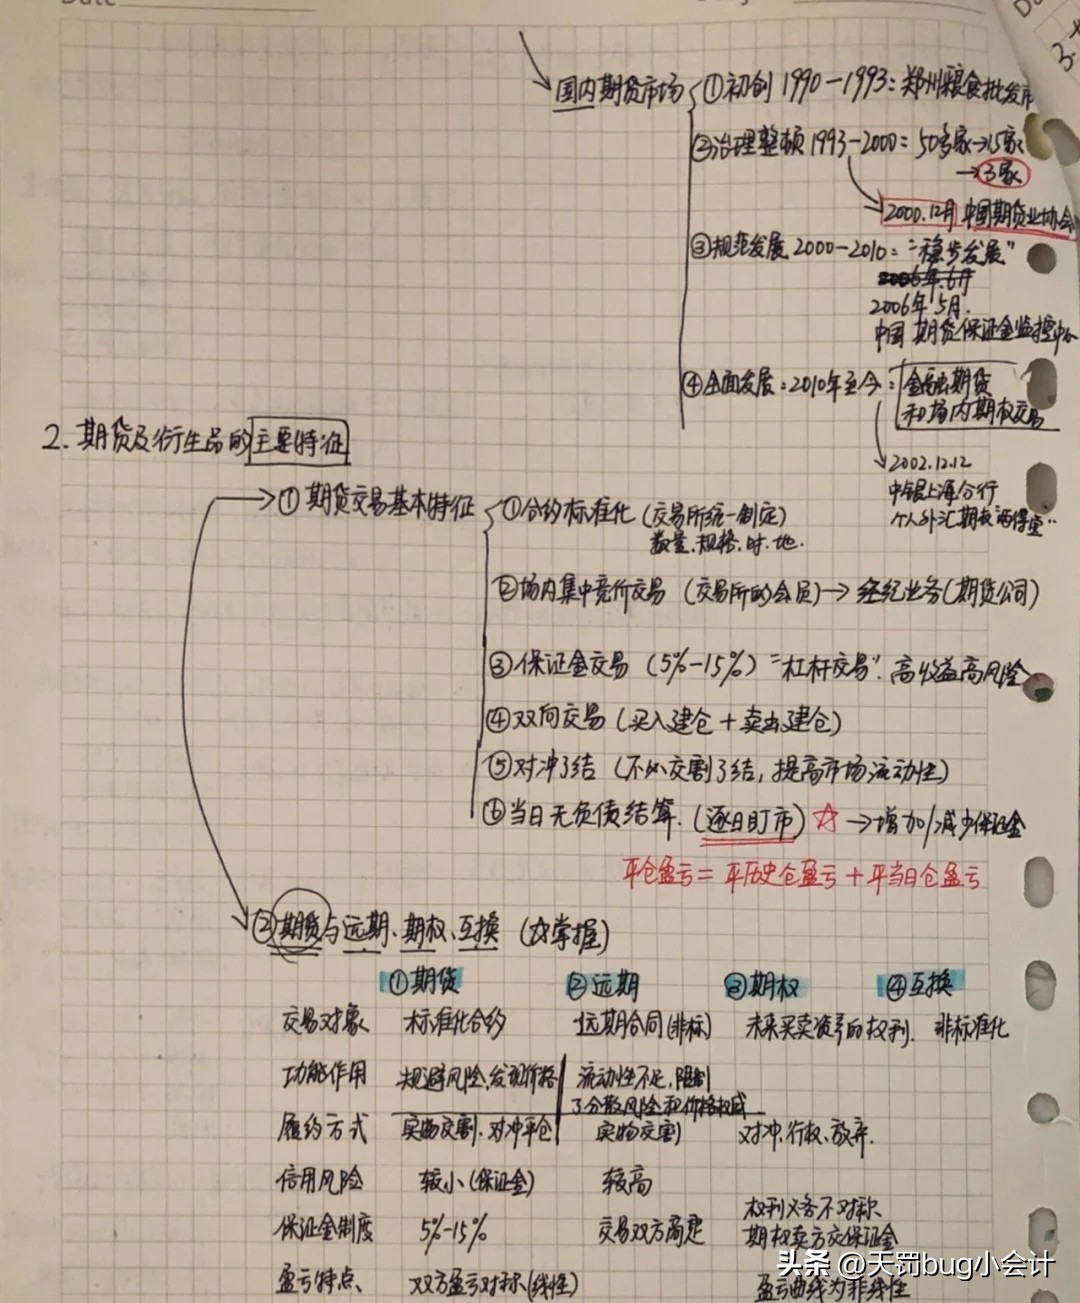 国内期货市场 ①初创 1990-1993: 郑州粮食批发市
②治理整顿 1993-2000: 50多家→15家
→3家
2000.12月 中国期货业协会
③规范发展 2000-2010: "稳步发展"
2006年.6月
2006年5月.
中国期货保证金监控中心
④全面发展: 2010年至今: 金融期货
和场内期权交易
2002.12.12
中银上海分行
个人外汇期权"两得宝"
2. 期货及衍生品的主要特征
①期货交易基本特征 ①合约标准化 (交易所统一制定)
数量、规格、时、地.
②场内集中竞价交易 (交易所的会员)→ 经纪业务(期货公司)
③保证金交易 (5%-15%) "杠杆交易". 高收益高风险
④双向交易 (买入建仓 + 卖出建仓)
⑤对冲了结 (不必交割了结, 提高市场流动性)
⑥当日无负债结算. (逐日盯市) ☆ →增加/减少保证金
平仓盈亏 = 平历史仓盈亏 + 平当日仓盈亏
②期货与远期、期权、互换 (☆掌握)
①期货 ②远期 ③期权 ④互换
交易对象 标准化合约 远期合同(非标) 未来买卖资的权利. 非标准化
功能作用 规避风险、发现价格 流动性不足, 限制
了分散风险和价格权威
履约方式 实物交割、对冲平仓 实物交割 对冲、行权、放弃.
信用风险 较小(保证金) 较高
权利义务不对称、
保证金制度 5%-15% 交易双方商定 期权卖方交保证金
盈亏特点、 双方盈亏对称(线性) 盈亏曲线为非线性
头条 @天罚bug小会计